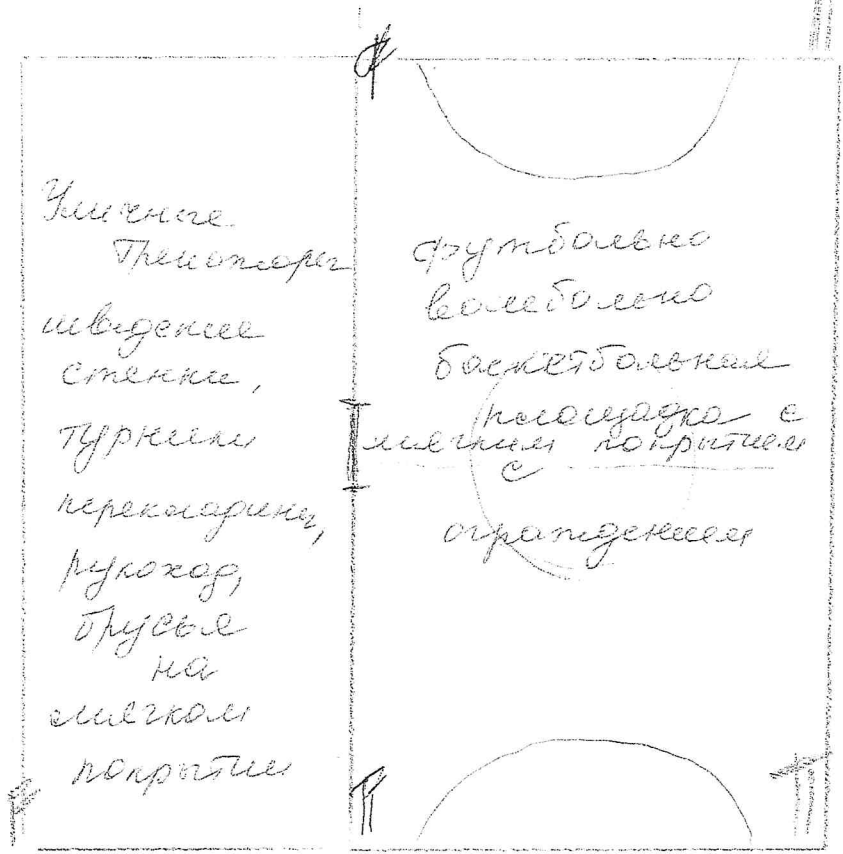 Уличные
Тренажоры
шведские
стенки,
турники
перекладины,
рукоход,
брусья
на
мягком
покрытии
футбольно
волебольно
баскетбольная
площадка с
мягким покрытием
с
ограждением